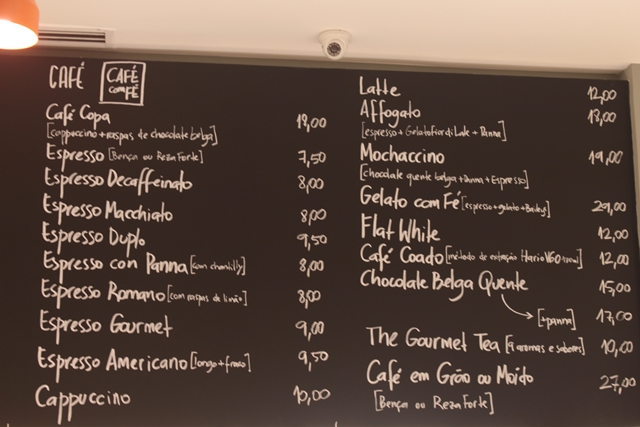 CAFÉ
CAFÉ
com FÉ
Café Copa 18,00
[cappuccino + raspas de chocolate belga]
Espresso [Bença ou Reza Forte] 7,50
Espresso Decaffeinato 8,00
Espresso Macchiato 8,00
Espresso Duplo 9,50
Espresso con Panna [com chantilly] 8,00
Espresso Romano [com raspas de limão] 8,00
Espresso Gourmet 9,00
Espresso Americano [longo + fraco] 9,50
Cappuccino 10,00
Latte 12,00
Affogato 18,00
[espresso + Gelato Fior di Latte + Panna]
Mochaccino 19,00
[chocolate quente belga + Panna + Espresso]
Gelato com Fé [espresso + gelato + Baileys] 29,00
Flat White 12,00
Café Coado [método de extração Hario V60] 12,00
Chocolate Belga Quente 15,00
[+ panna] 17,00
The Gourmet Tea [9 aromas e sabores] 10,00
Café em Grão ou Moído 27,00
[Bença ou Reza Forte]